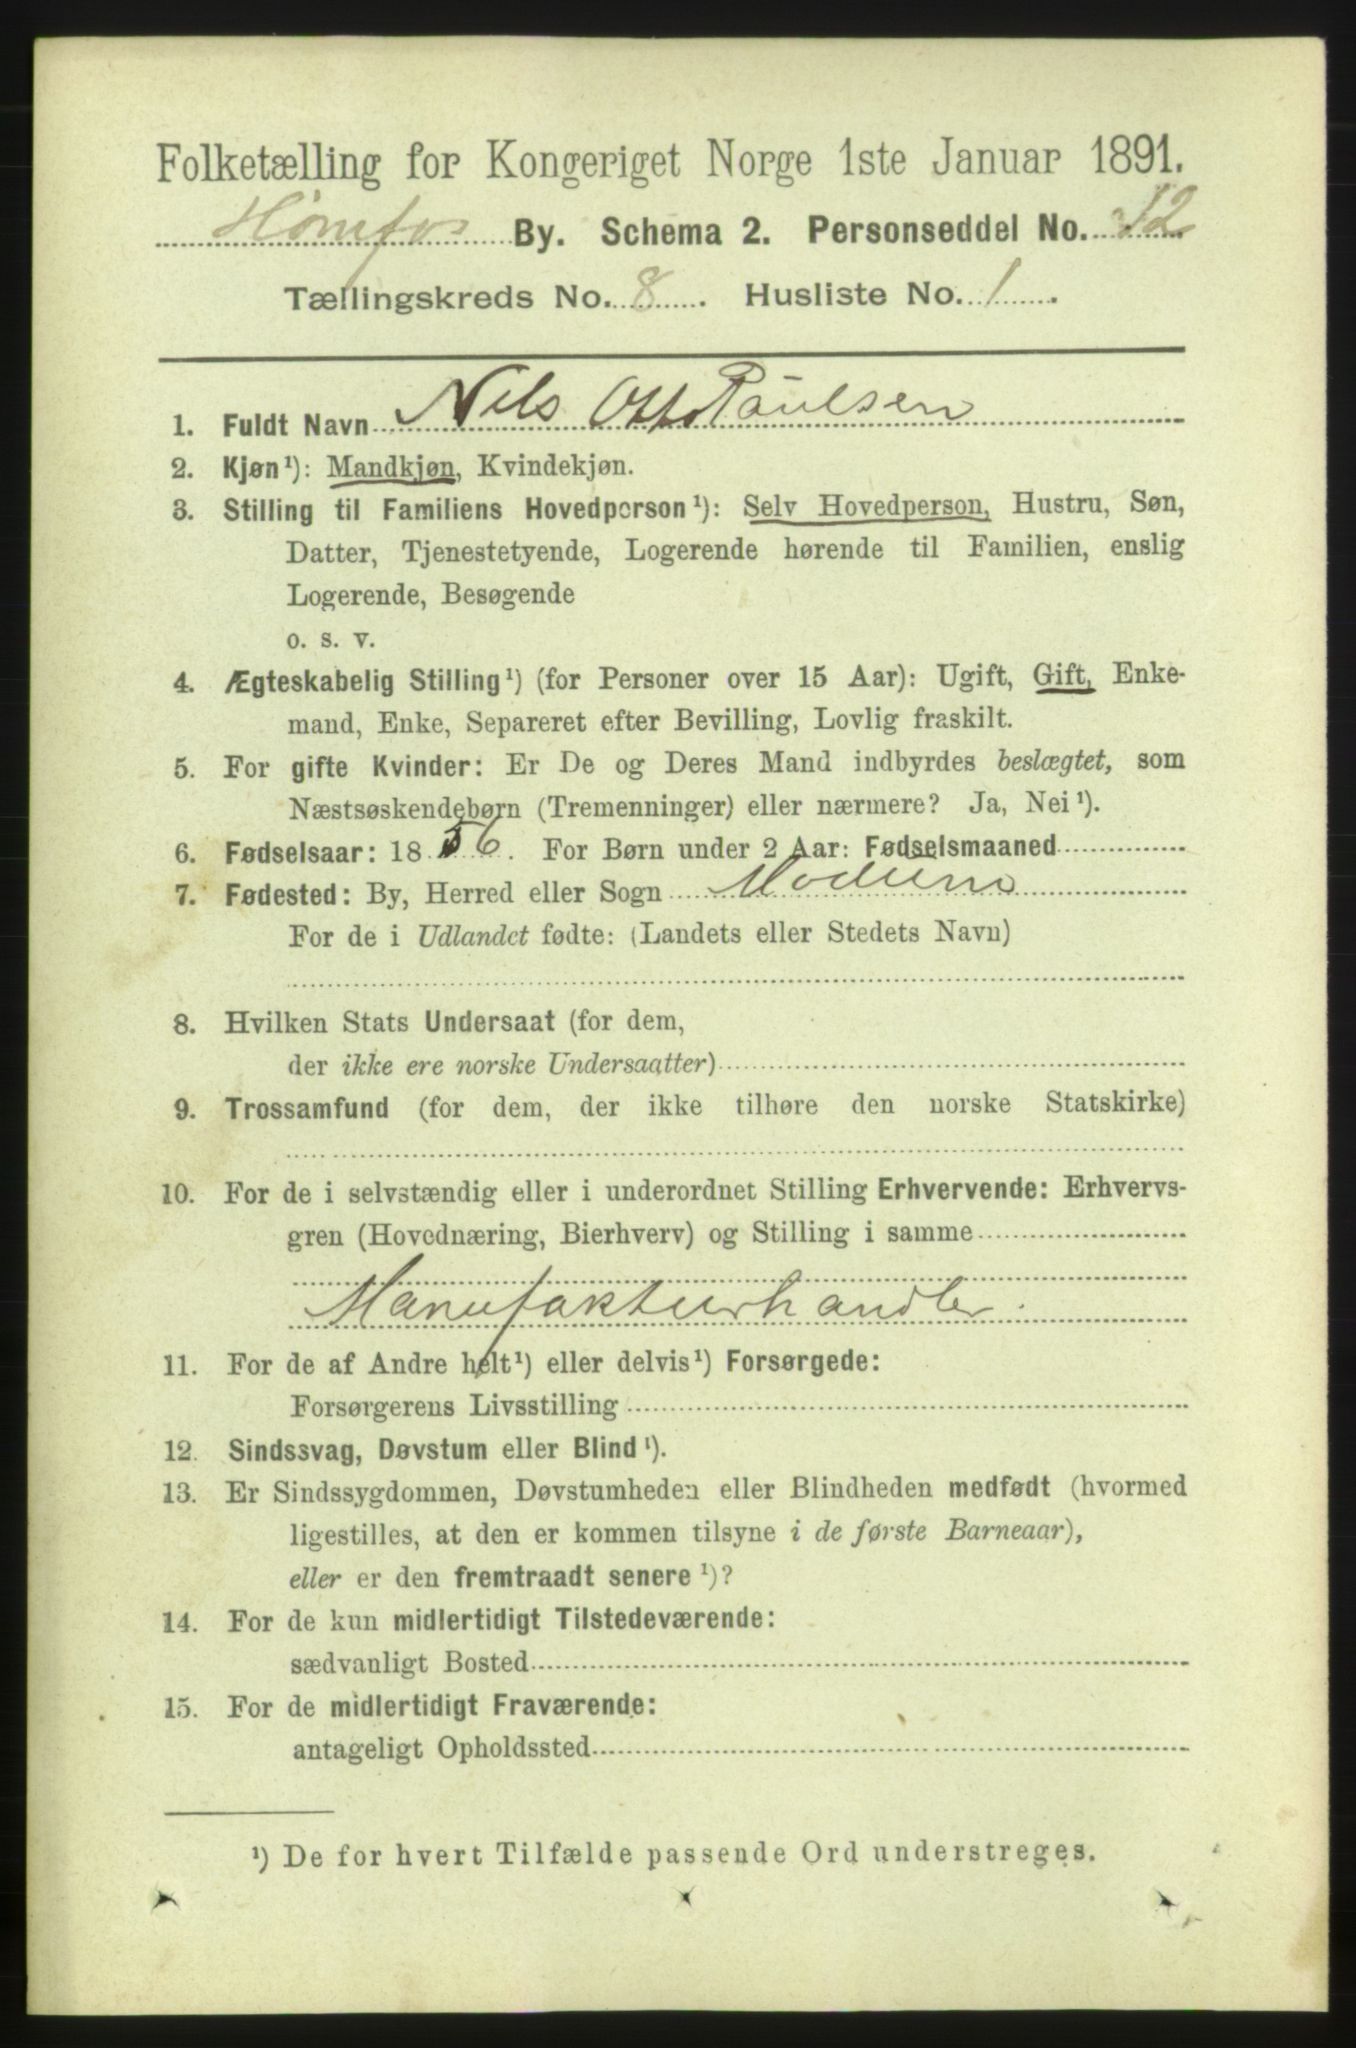 Folketælling for Kongeriget Norge 1ste Januar 1891.
Hønefos By. Schema 2. Personseddel No. 12
Tællingskreds No. 8. Husliste No. 1.
1. Fuldt Navn Nils Otto Paulsen
2. Kjøn¹): Mandkjøn, Kvindekjøn.
3. Stilling til Familiens Hovedperson¹): Selv Hovedperson, Hustru, Søn,
Datter, Tjenestetyende, Logerende hørende til Familien, enslig
Logerende, Besøgende
o. s. v.
4. Ægteskabelig Stilling¹) (for Personer over 15 Aar): Ugift, Gift, Enke-
mand, Enke, Separeret efter Bevilling, Lovlig fraskilt.
5. For gifte Kvinder: Er De og Deres Mand indbyrdes beslægtet, som
Næstsøskendebørn (Tremenninger) eller nærmere? Ja, Nei¹).
6. Fødselsaar: 1856. For Børn under 2 Aar: Fødselsmaaned
7. Fødested: By, Herred eller Sogn Modum
For de i Udlandet fødte: (Landets eller Stedets Navn)
8. Hvilken Stats Undersaat (for dem,
der ikke ere norske Undersaatter)
9. Trossamfund (for dem, der ikke tilhøre den norske Statskirke)
10. For de i selvstændig eller i underordnet Stilling Erhvervende: Erhvervs-
gren (Hovednæring, Bierhverv) og Stilling i samme
Manufakturhandler.
11. For de af Andre helt¹) eller delvis¹) Forsørgede:
Forsørgerens Livsstilling
12. Sindssvag, Døvstum eller Blind¹).
13. Er Sindssygdommen, Døvstumheden eller Blindheden medfødt (hvormed
ligestilles, at den er kommen tilsyne i de første Barneaar),
eller er den fremtraadt senere¹)?
14. For de kun midlertidigt Tilstedeværende:
sædvanligt Bosted
15. For de midlertidigt Fraværende:
antageligt Opholdssted
¹) De for hvert Tilfælde passende Ord understreges.